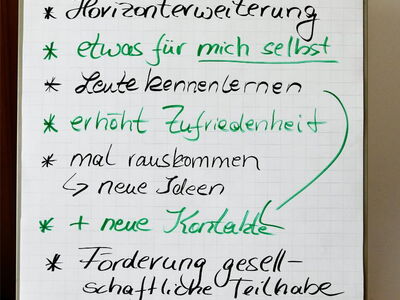 * Horizonterweiterung
* etwas für mich selbst
* Leute kennenlernen
* erhöht Zufriedenheit
* mal rauskommen
↳ neue Ideen
* + neue Kontakte
* Förderung gesell-
schaftliche Teilhabe